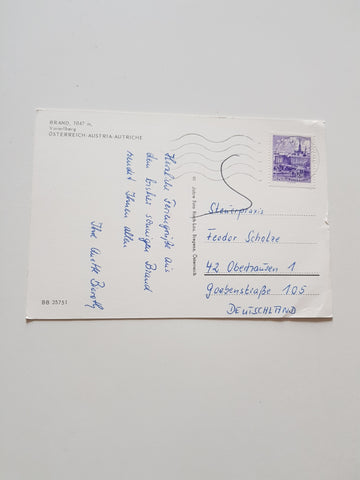 BRAND, 1047 m,
Vorarlberg
ÖSTERREICH-AUSTRIA-AUTRICHE
Herzliche Feriengrüße aus
dem bisher sonnigen Brand
sendet Ihnen allen
Ihre Anette
BB 25751
Steuerpraxis
Feodor Scholze
42 Oberhausen 1
Goebenstraße 105
DEUTSCHLAND